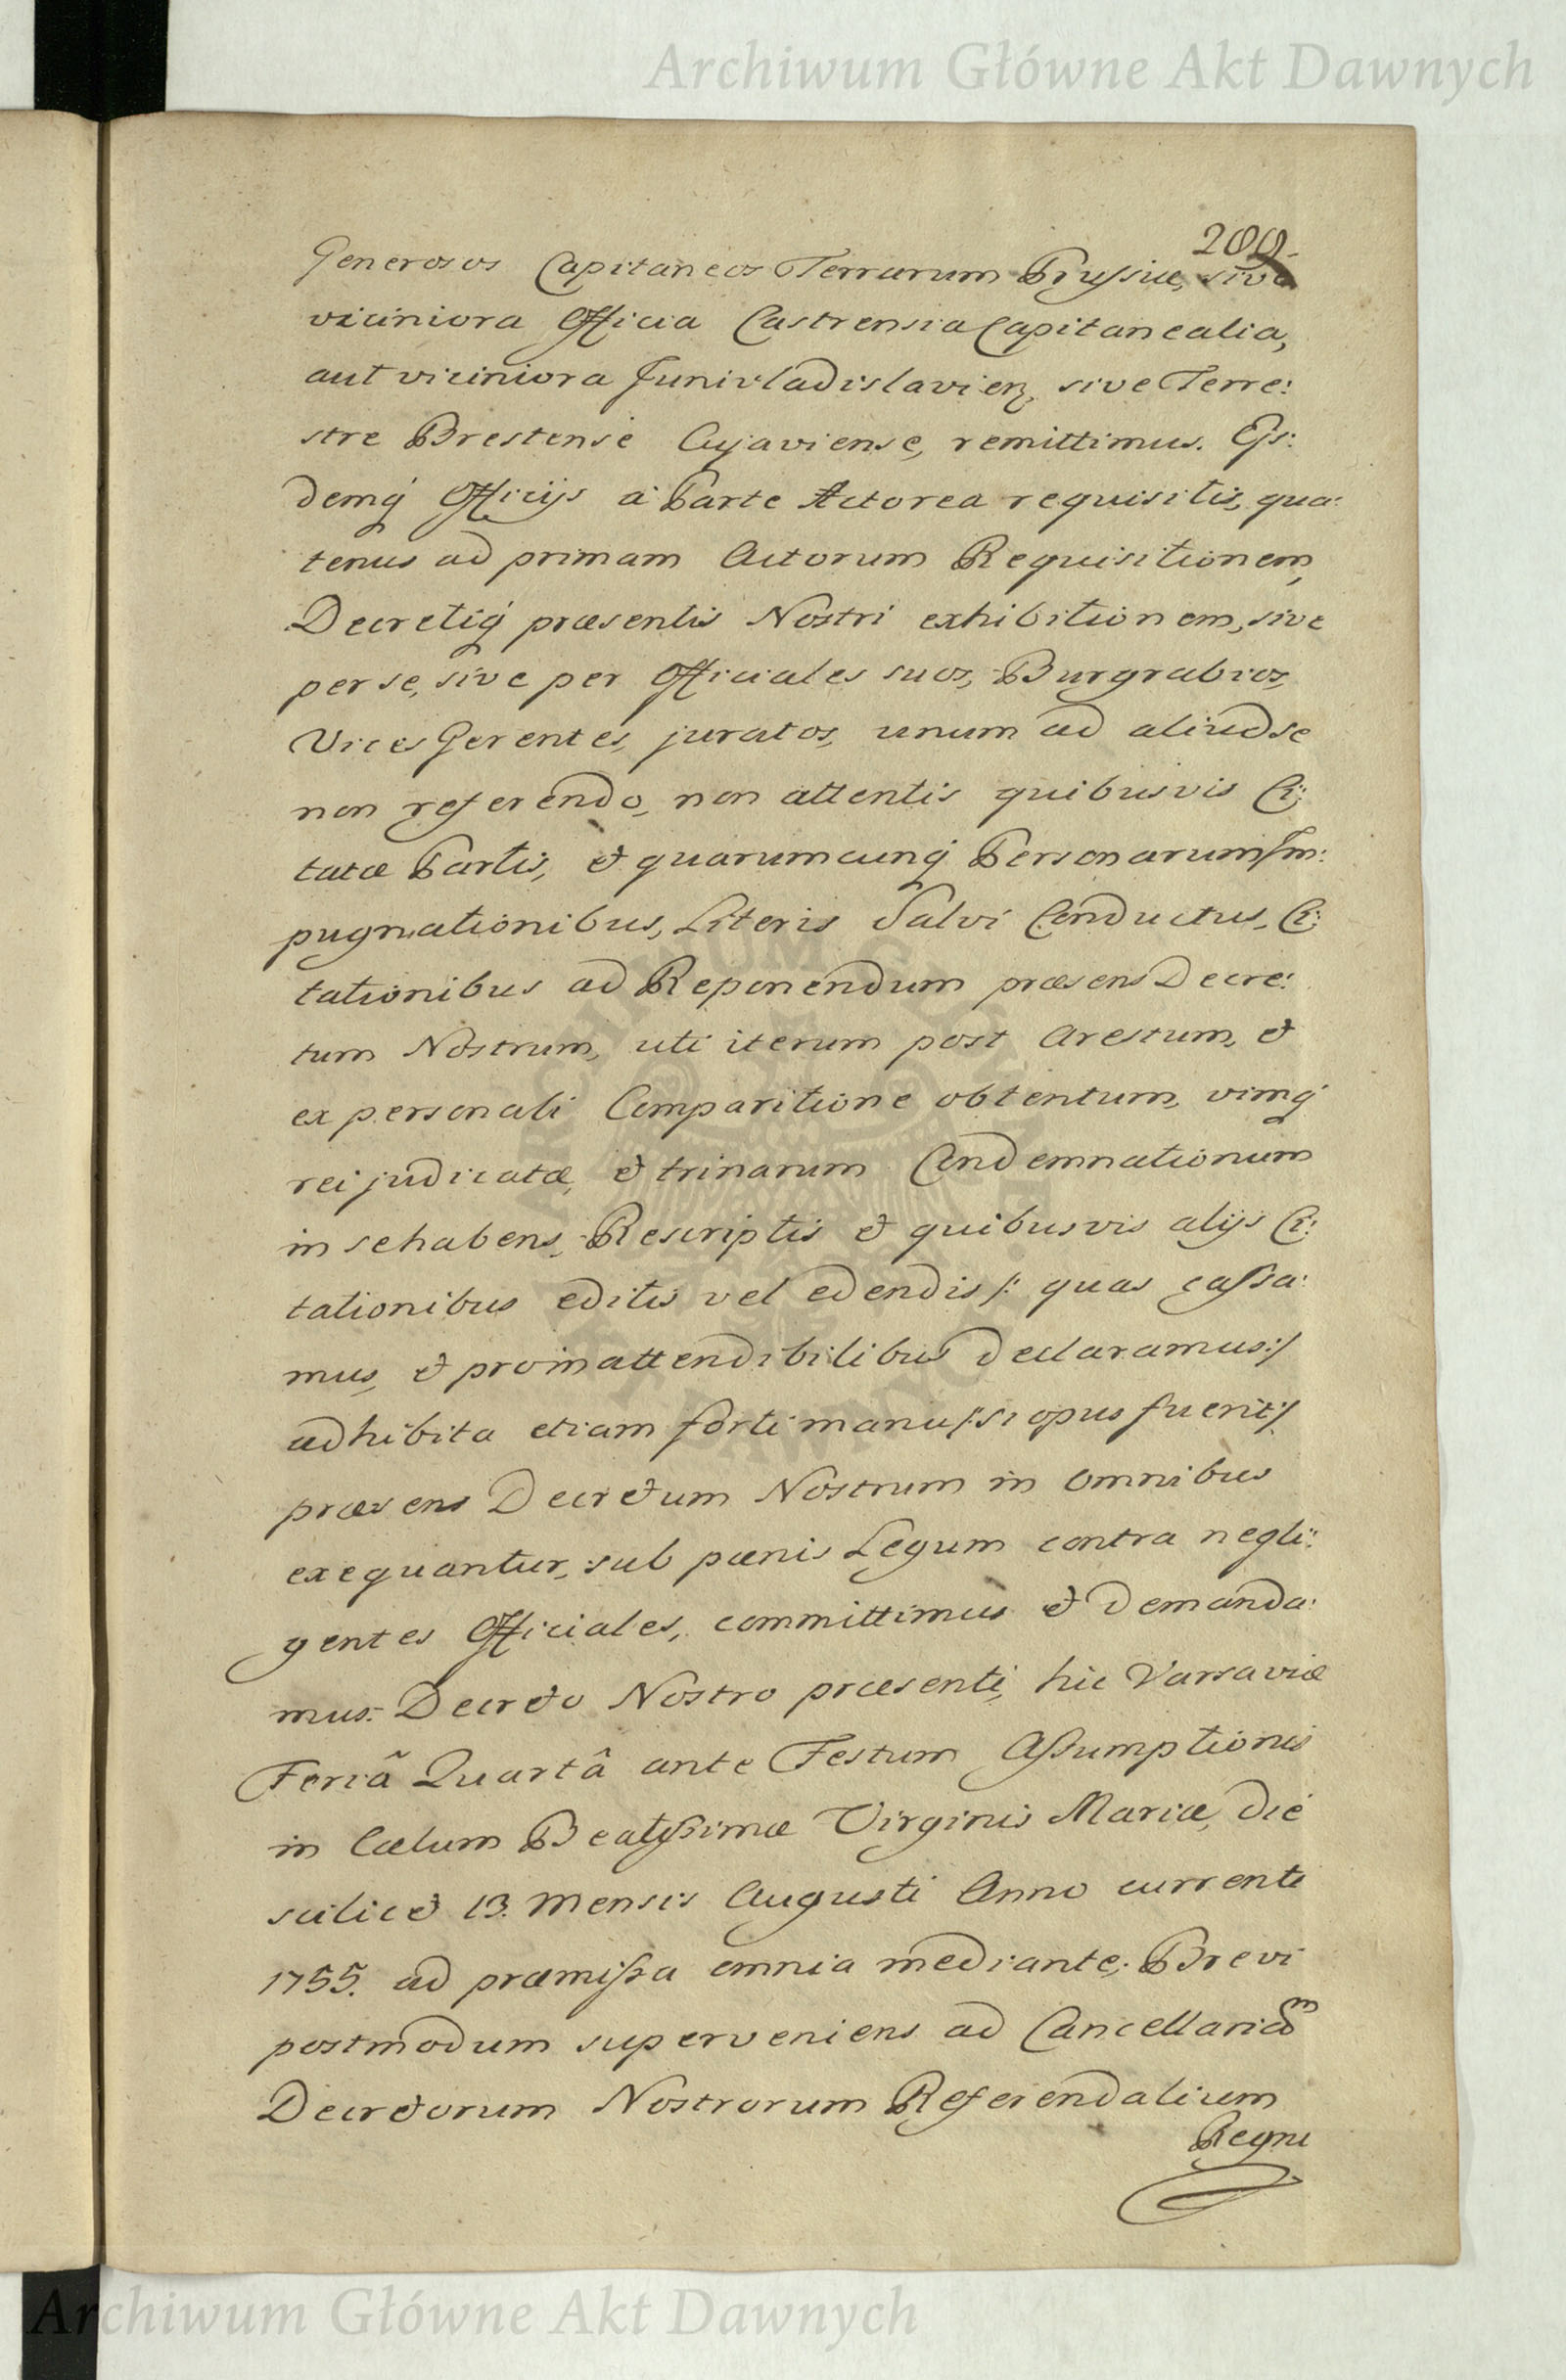 Archiwum Główne Akt Dawnych
200.
Generosos Capitaneos Terrarum Prussiæ, sive
viciniora Officia Castrensia Capitanealia,
aut viciniora Junivladislavien, sive Terre:
stre Brestense Cujaviense, remittimus. Ejs:
demq́ Officijs à Parte Actorea requisitis, qua:
tenus ad primam Actorum Requisitionem,
Decretiq́ præsentis Nostri exhibitionem, sive
per se, sive per Officiales suos, Burgrabios,
Vices Gerentes, juratos, unum ad aliud se
non referendo, non attentis quibusvis Ci:
tatæ Partis, et quarumcunq́ Personarum Im:
pugnationibus, Literis Salvi Conductus, Ci:
tationibus ad Reponendum præsens Decre:
tum Nostrum, uti iterum post Arestum, et
ex personali Comparitione obtentum, vimq́
rei judicatæ, et trinarum Condemnationum
in se habens, Rescriptis et quibusvis alijs Ci:
tationibus editis vel edendis /: quas cassa:
mus, et pro inattendibilibus declaramus :/
adhibita etiam forti manu /: si opus fuerit :/
præsens Decretum Nostrum in omnibus
exequantur, sub pænis Legum contra negli:
gentes Officiales, committimus et demanda:
mus. Decreto Nostro præsenti, hic Varsaviæ
Feriâ Quartâ ante Festum Assumptionis
in Cælum Beatissimæ Virginis Mariæ, die
scilicet 13. Mensis Augusti Anno currente
1755. ad præmissa omnia mediante. Brevi
postmodum superveniens ad Cancellariam
Decretorum Nostrorum Referendalium
Regni
Archiwum Główne Akt Dawnych